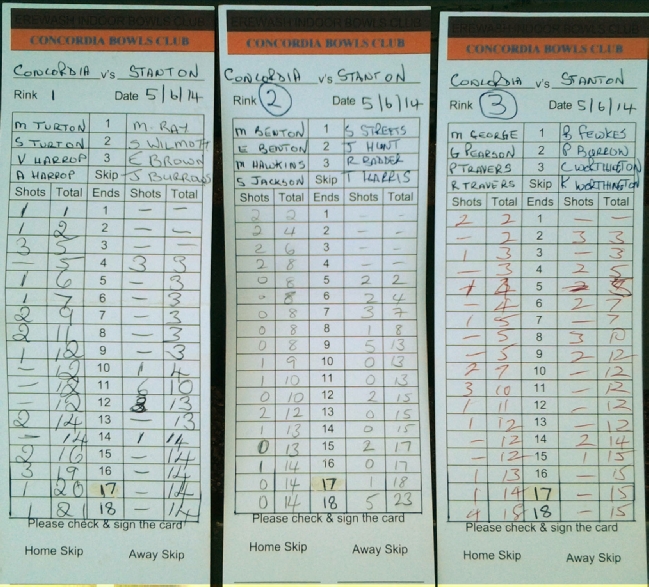 EREWASH INDOOR BOWLS CLUB
CONCORDIA BOWLS CLUB
CONCORDIA v's STANTON
Rink 1 Date 5/6/14
M TURTON 1 M. RAY
S TURTON 2 S WILMOTT
V HARROP 3 E BROWN
A HARROP Skip J BURROWS
Shots Total Ends Shots Total
1 1 1 – –
1 2 2 – –
3 5 3 – –
– 5 4 3 3
1 6 5 – 3
1 7 6 – 3
2 9 7 – 3
2 11 8 – 3
1 12 9 – 3
– 12 10 1 4
– 12 11 6 10
– 12 12 3 13
2 14 13 – 13
– 14 14 1 14
2 16 15 – 14
3 19 16 – 14
1 20 17 – 14
1 21 18 – 14
Please check & sign the card
Home Skip Away Skip
EREWASH INDOOR BOWLS CLUB
CONCORDIA BOWLS CLUB
CONCORDIA v's STANTON
Rink 2 Date 5/6/14
M BENTON 1 S STREETS
E BENTON 2 J HUNT
M HAWKINS 3
S JACKSON Skip T HARRIS
Shots Total Ends Shots Total
2 2 1 - -
2 4 2 - -
2 6 3 - -
2 8 4 - -
0 8 5 2 2
0 8 6 2 4
0 8 7 3 7
0 8 8 1 8
0 8 9 5 13
1 9 10 0 13
1 10 11 0 13
0 10 12 2 15
2 12 13 0 15
1 13 14 0 15
0 13 15 2 17
1 14 16 0 17
0 14 17 1 18
0 14 18 5 23
Please check & sign the card
Home Skip Away Skip
EREWASH INDOOR BOWLS CLUB
CONCORDIA BOWLS CLUB
CONCORDIA v's STANTON
Rink 3 Date 5/6/14
M GEORGE 1 B FEWKES
G PEARSON 2 P BURROW
P TRAVERS 3 C WORTHINGTON
R TRAVERS Skip K WORTHINGTON
Shots Total Ends Shots Total
2 2 1 – –
– 2 2 3 3
1 3 3 – 3
– 3 4 2 5
1 4 5 – 5
– 4 6 2 7
1 5 7 – 7
– 5 8 3 10
– 5 9 2 12
2 7 10 – 12
3 10 11 – 12
1 11 12 – 12
1 12 13 – 12
– 12 14 2 14
– 12 15 1 15
1 13 16 – 15
1 14 17 – 15
4 18 18 – 15
Please check & sign the card
Home Skip Away Skip